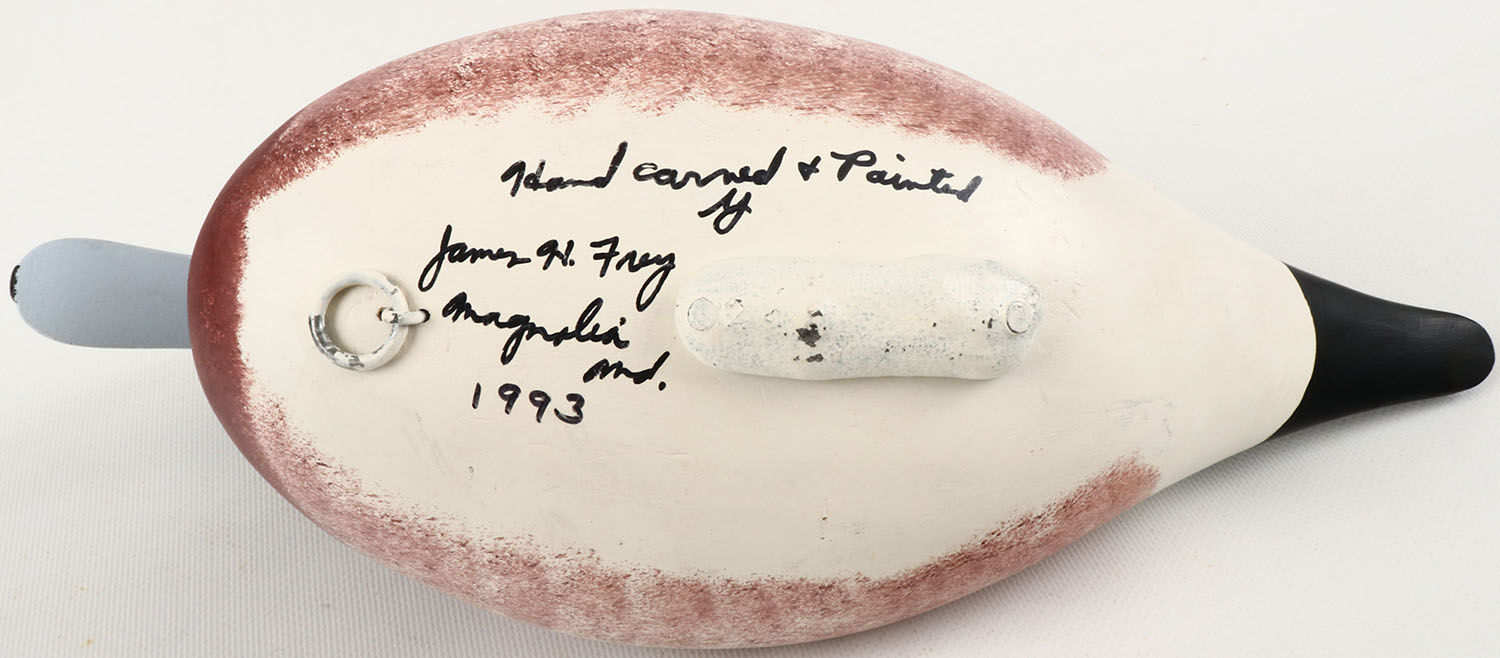 Hand carved & Painted
by
James H. Frey
Magnolia
Md.
1993